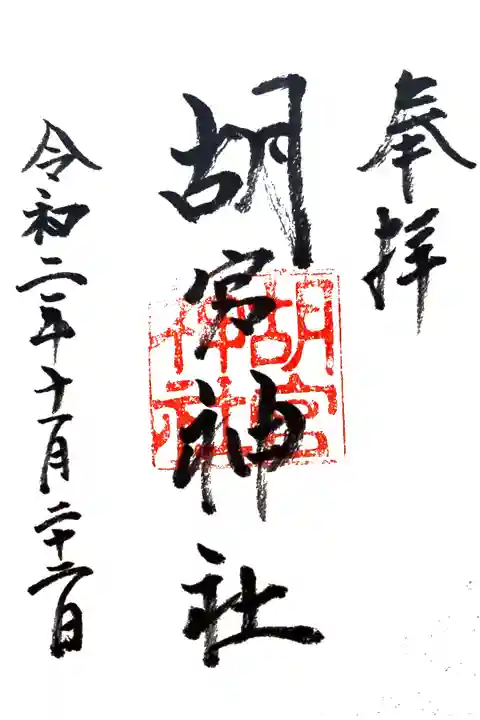 奉拝
胡宮神社
胡宮
神社
令和二年十一月二十二日